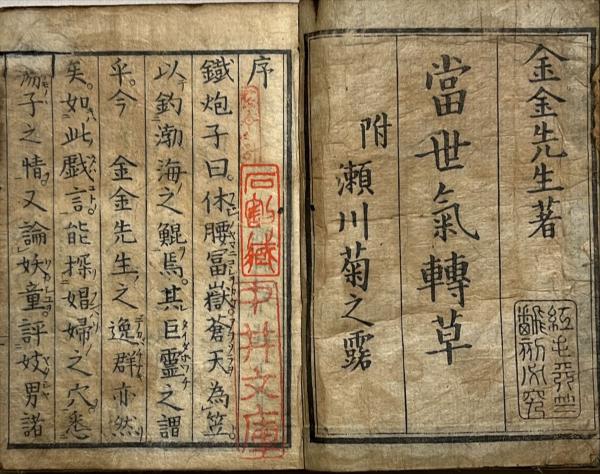 金金先生著
當世氣轉草
附 瀬川菊之露
序
鐵炮子曰。休腰冨嶽蒼天為笠。
以釣渤海之鯤焉。其巨靈之謂
乎。今 金金先生之逸群亦然
矣。如此戯言能探娼婦之穴。悉
子之情。又論妖童評妓男諸
石割藏
中井文庫